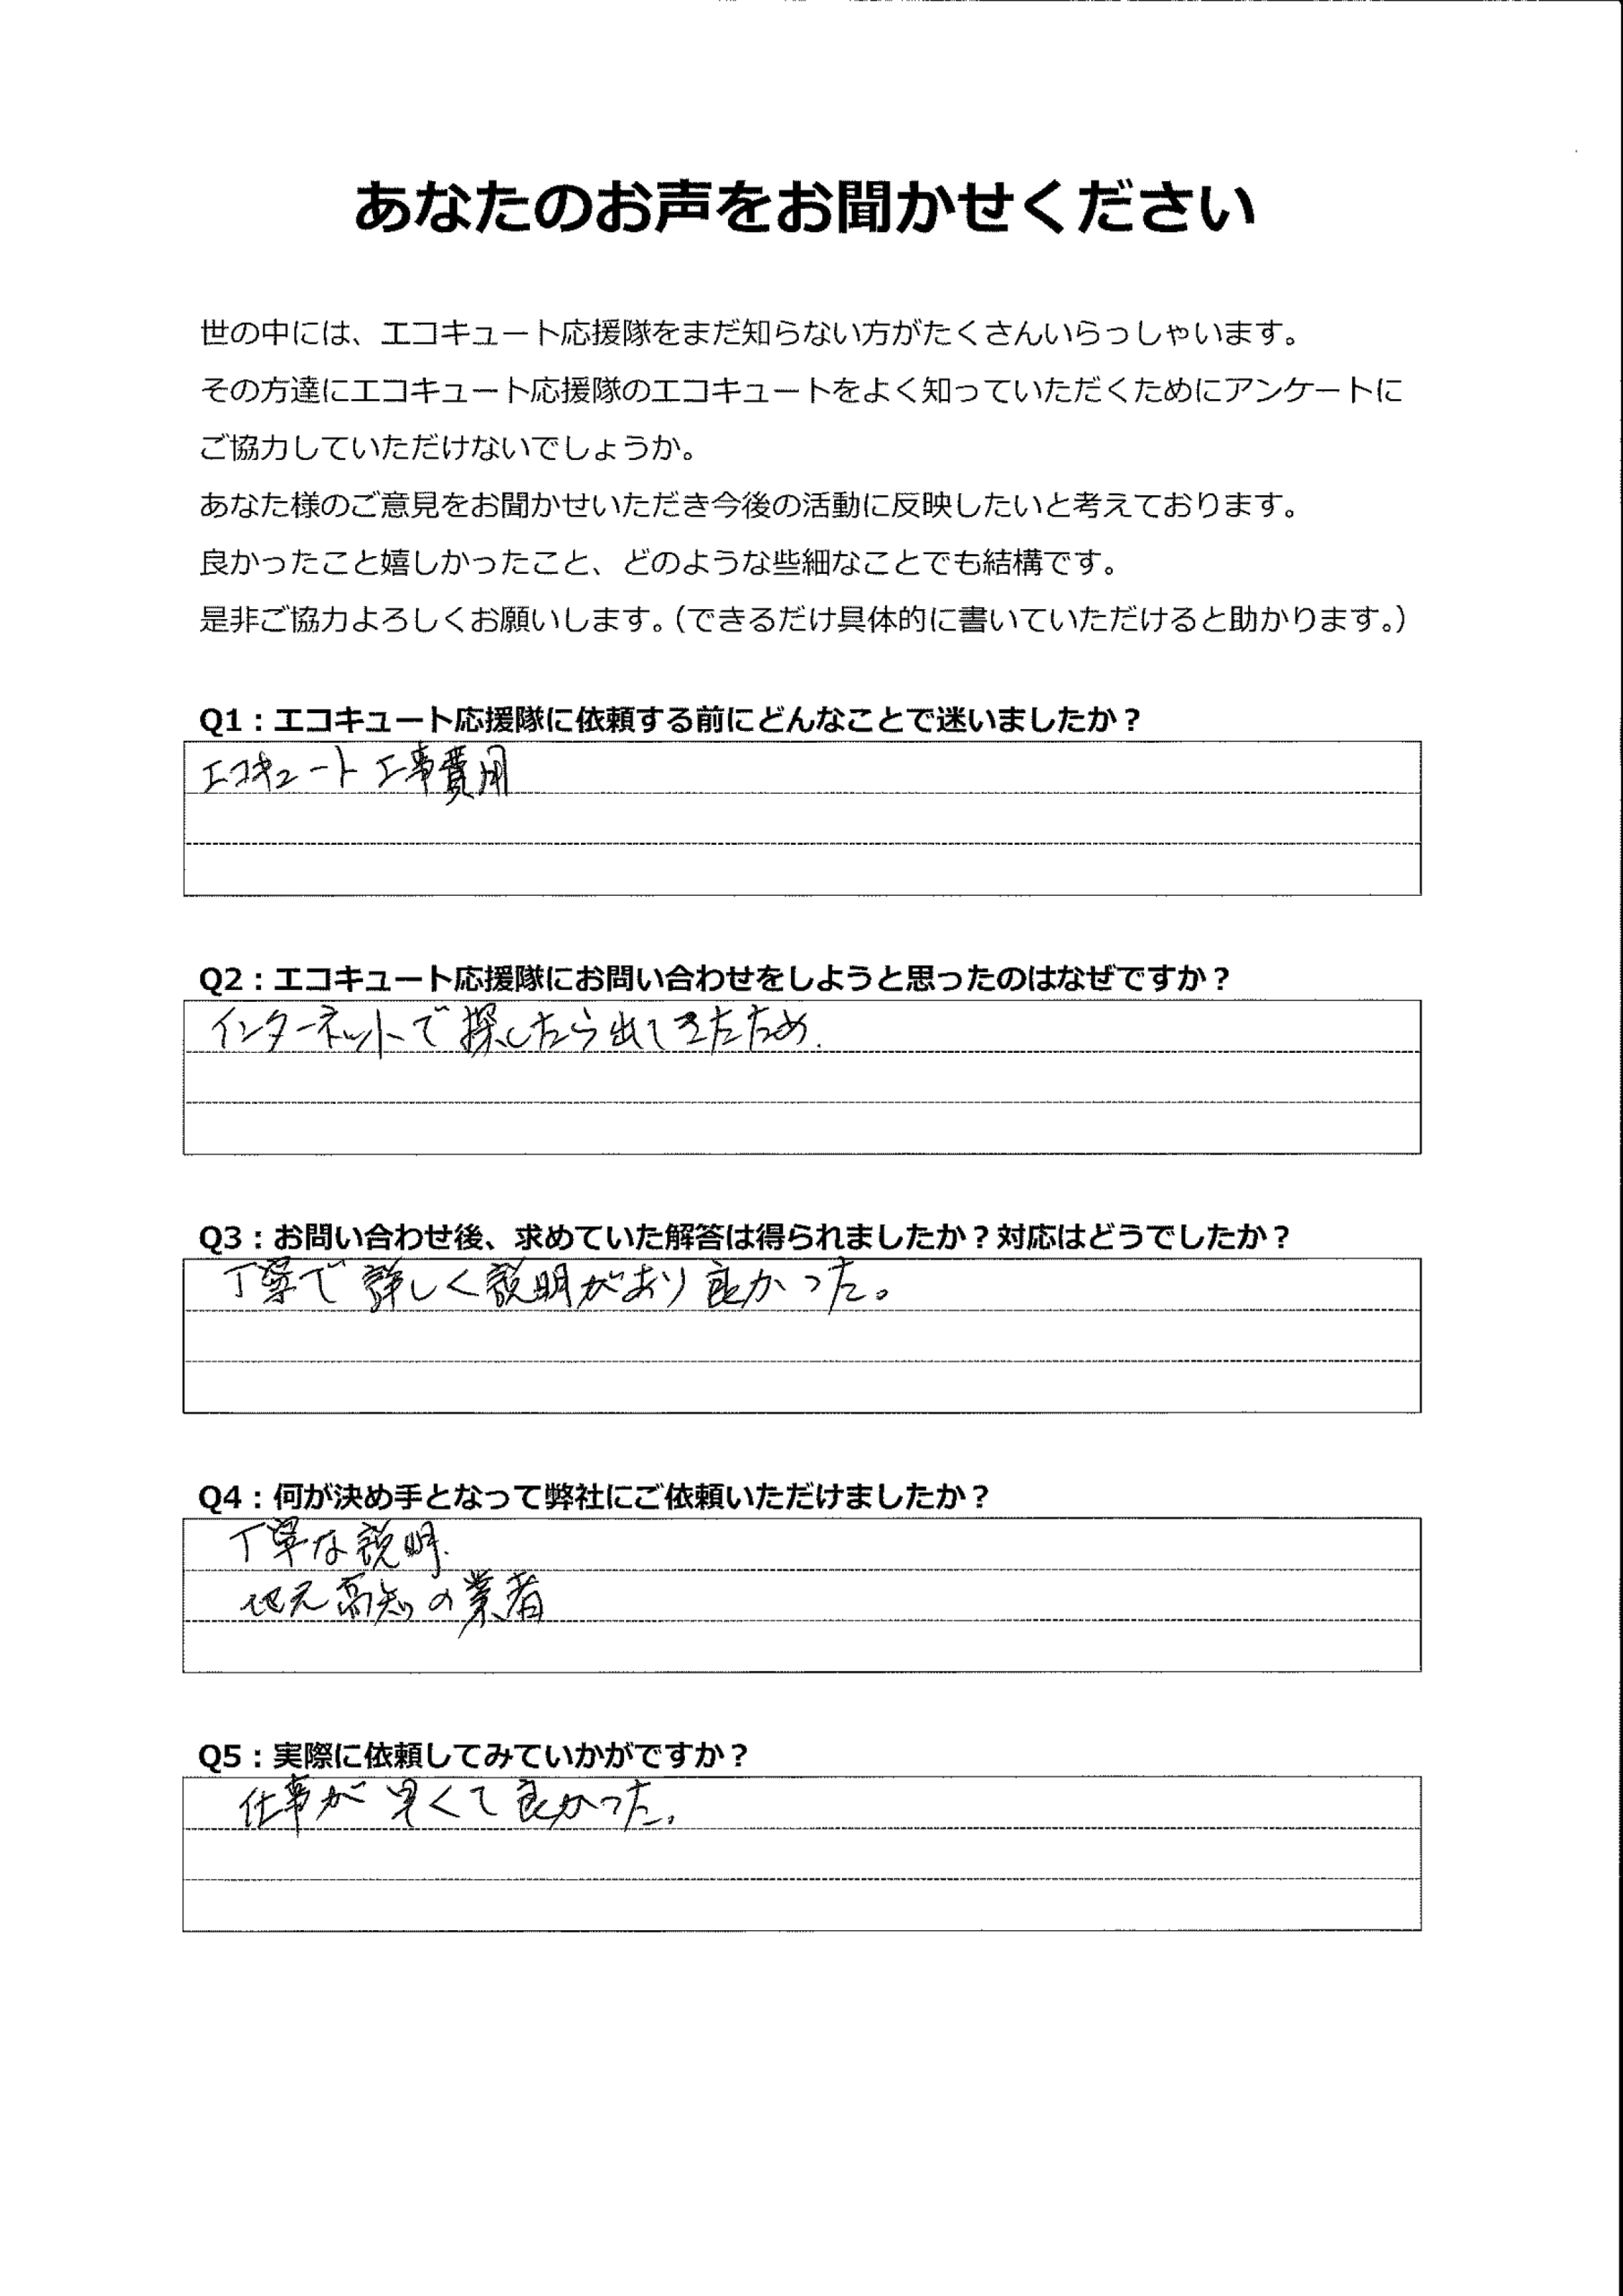 あなたのお声をお聞かせください
世の中には、エコキュート応援隊をまだ知らない方がたくさんいらっしゃいます。
その方達にエコキュート応援隊のエコキュートをよく知っていただくためにアンケートに
ご協力していただけないでしょうか。
あなた様のご意見をお聞かせいただき今後の活動に反映したいと考えております。
良かったこと嬉しかったこと、どのような些細なことでも結構です。
是非ご協力よろしくお願いします。（できるだけ具体的に書いていただけると助かります。）
Q1：エコキュート応援隊に依頼する前にどんなことで迷いましたか？
エコキュート工事費用
Q2：エコキュート応援隊にお問い合わせをしようと思ったのはなぜですか？
インターネットで探したら出してきたため.
Q3：お問い合わせ後、求めていた解答は得られましたか？対応はどうでしたか？
丁寧で詳しく説明があり良かった。
Q4：何が決め手となって弊社にご依頼いただけましたか？
丁寧な説明.
地元高知の業者
Q5：実際に依頼してみていかがですか？
仕事が早くて良かった.